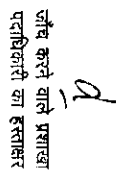 जाँच करने वाले प्रशाखा
पदाधिकारी का हस्ताक्षर